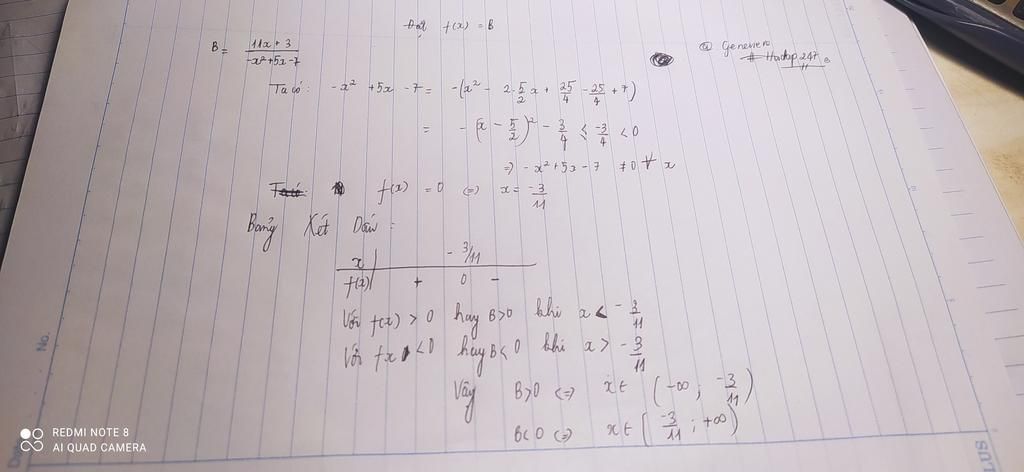 Đặt f(x) = B
B = \frac{11x + 3}{-x^2 + 5x - 7}
@ Genevero
# Hoidap247
Ta có: -x^2 + 5x - 7 = -(x^2 - 2.\frac{5}{2}x + \frac{25}{4} - \frac{25}{4} + 7)
= -(x - \frac{5}{2})^2 - \frac{3}{4} ≤ \frac{-3}{4} < 0
=> -x^2 + 5x - 7 ≠ 0 ∀ x
f(x) = 0 <=> x = \frac{-3}{11}
Bảng Xét Dấu:
x | -3/11
f(x) | + 0 -
Với f(x) > 0 hay B > 0 khi x < -\frac{3}{11}
Với fx < 0 hay B < 0 khi x > -\frac{3}{11}
Vậy B > 0 <=> x ∈ (-∞; \frac{-3}{11})
B < 0 <=> x ∈ (\frac{-3}{11}; +∞)
No.
REDMI NOTE 8
AI QUAD CAMERA